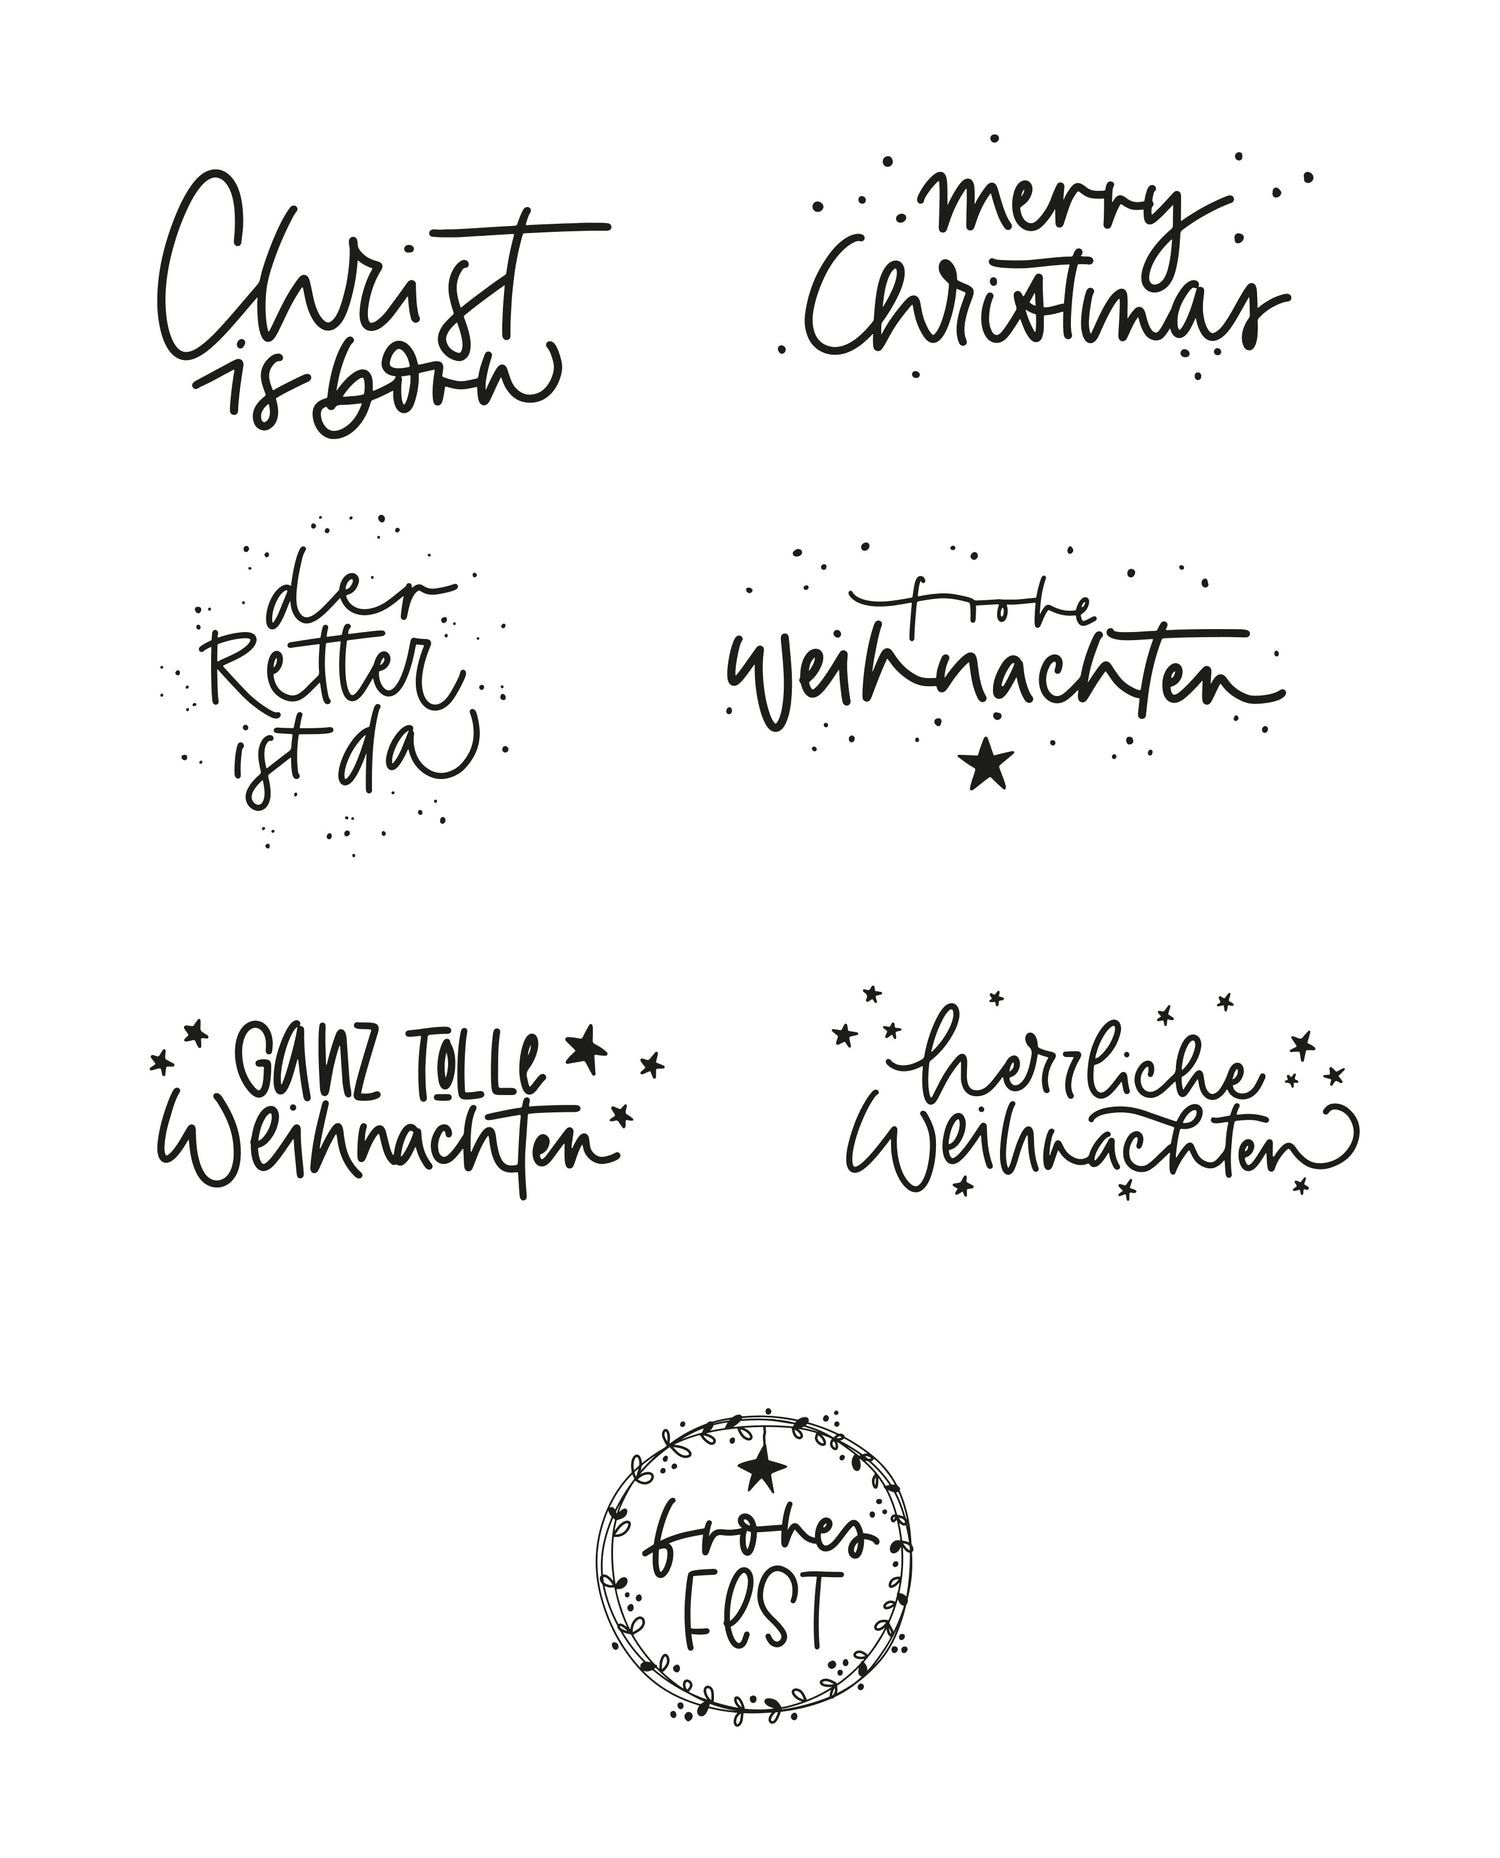 Christ
is born
merry
Christmas
der
Retter
ist da
frohe
Weihnachten
GANZ TOLLe
Weihnachten
herrliche
Weihnachten
frohes
FeST